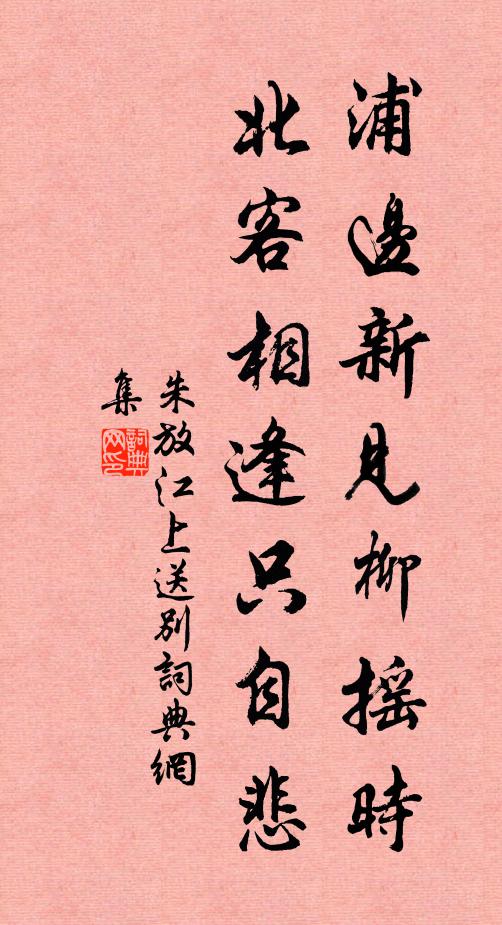 浦邊新見柳摇時
北客相逢只自悲
朱放江上送別詞典網
集
詞典
网印